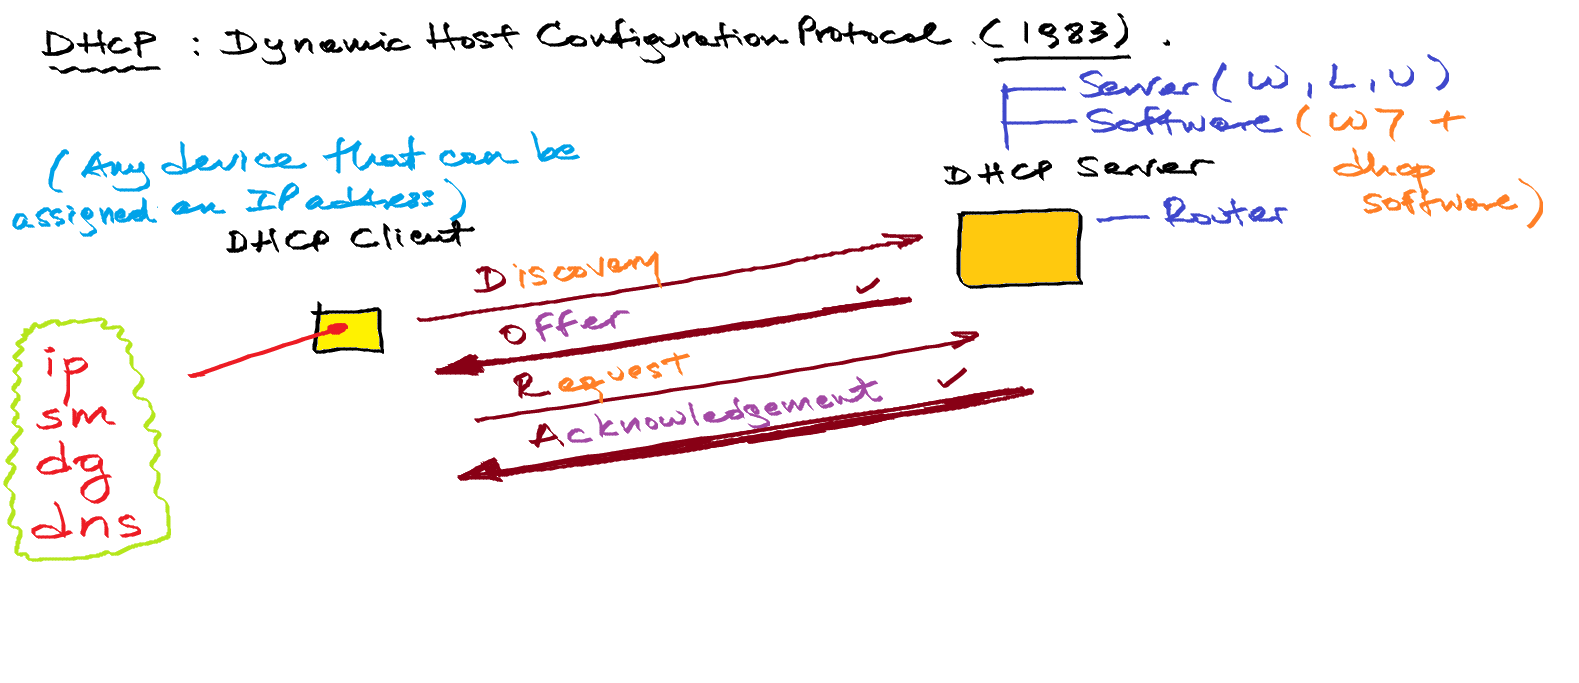 DHCP : Dynamic Host Configuration Protocol (1983).
Server (W, L, U)
Software (W7 +
dhcp
software)
DHCP Server
Router
(Any device that can be
assigned an IP address)
DHCP Client
Discovery
Offer
Request
Acknowledgement
ip
sm
dg
dns